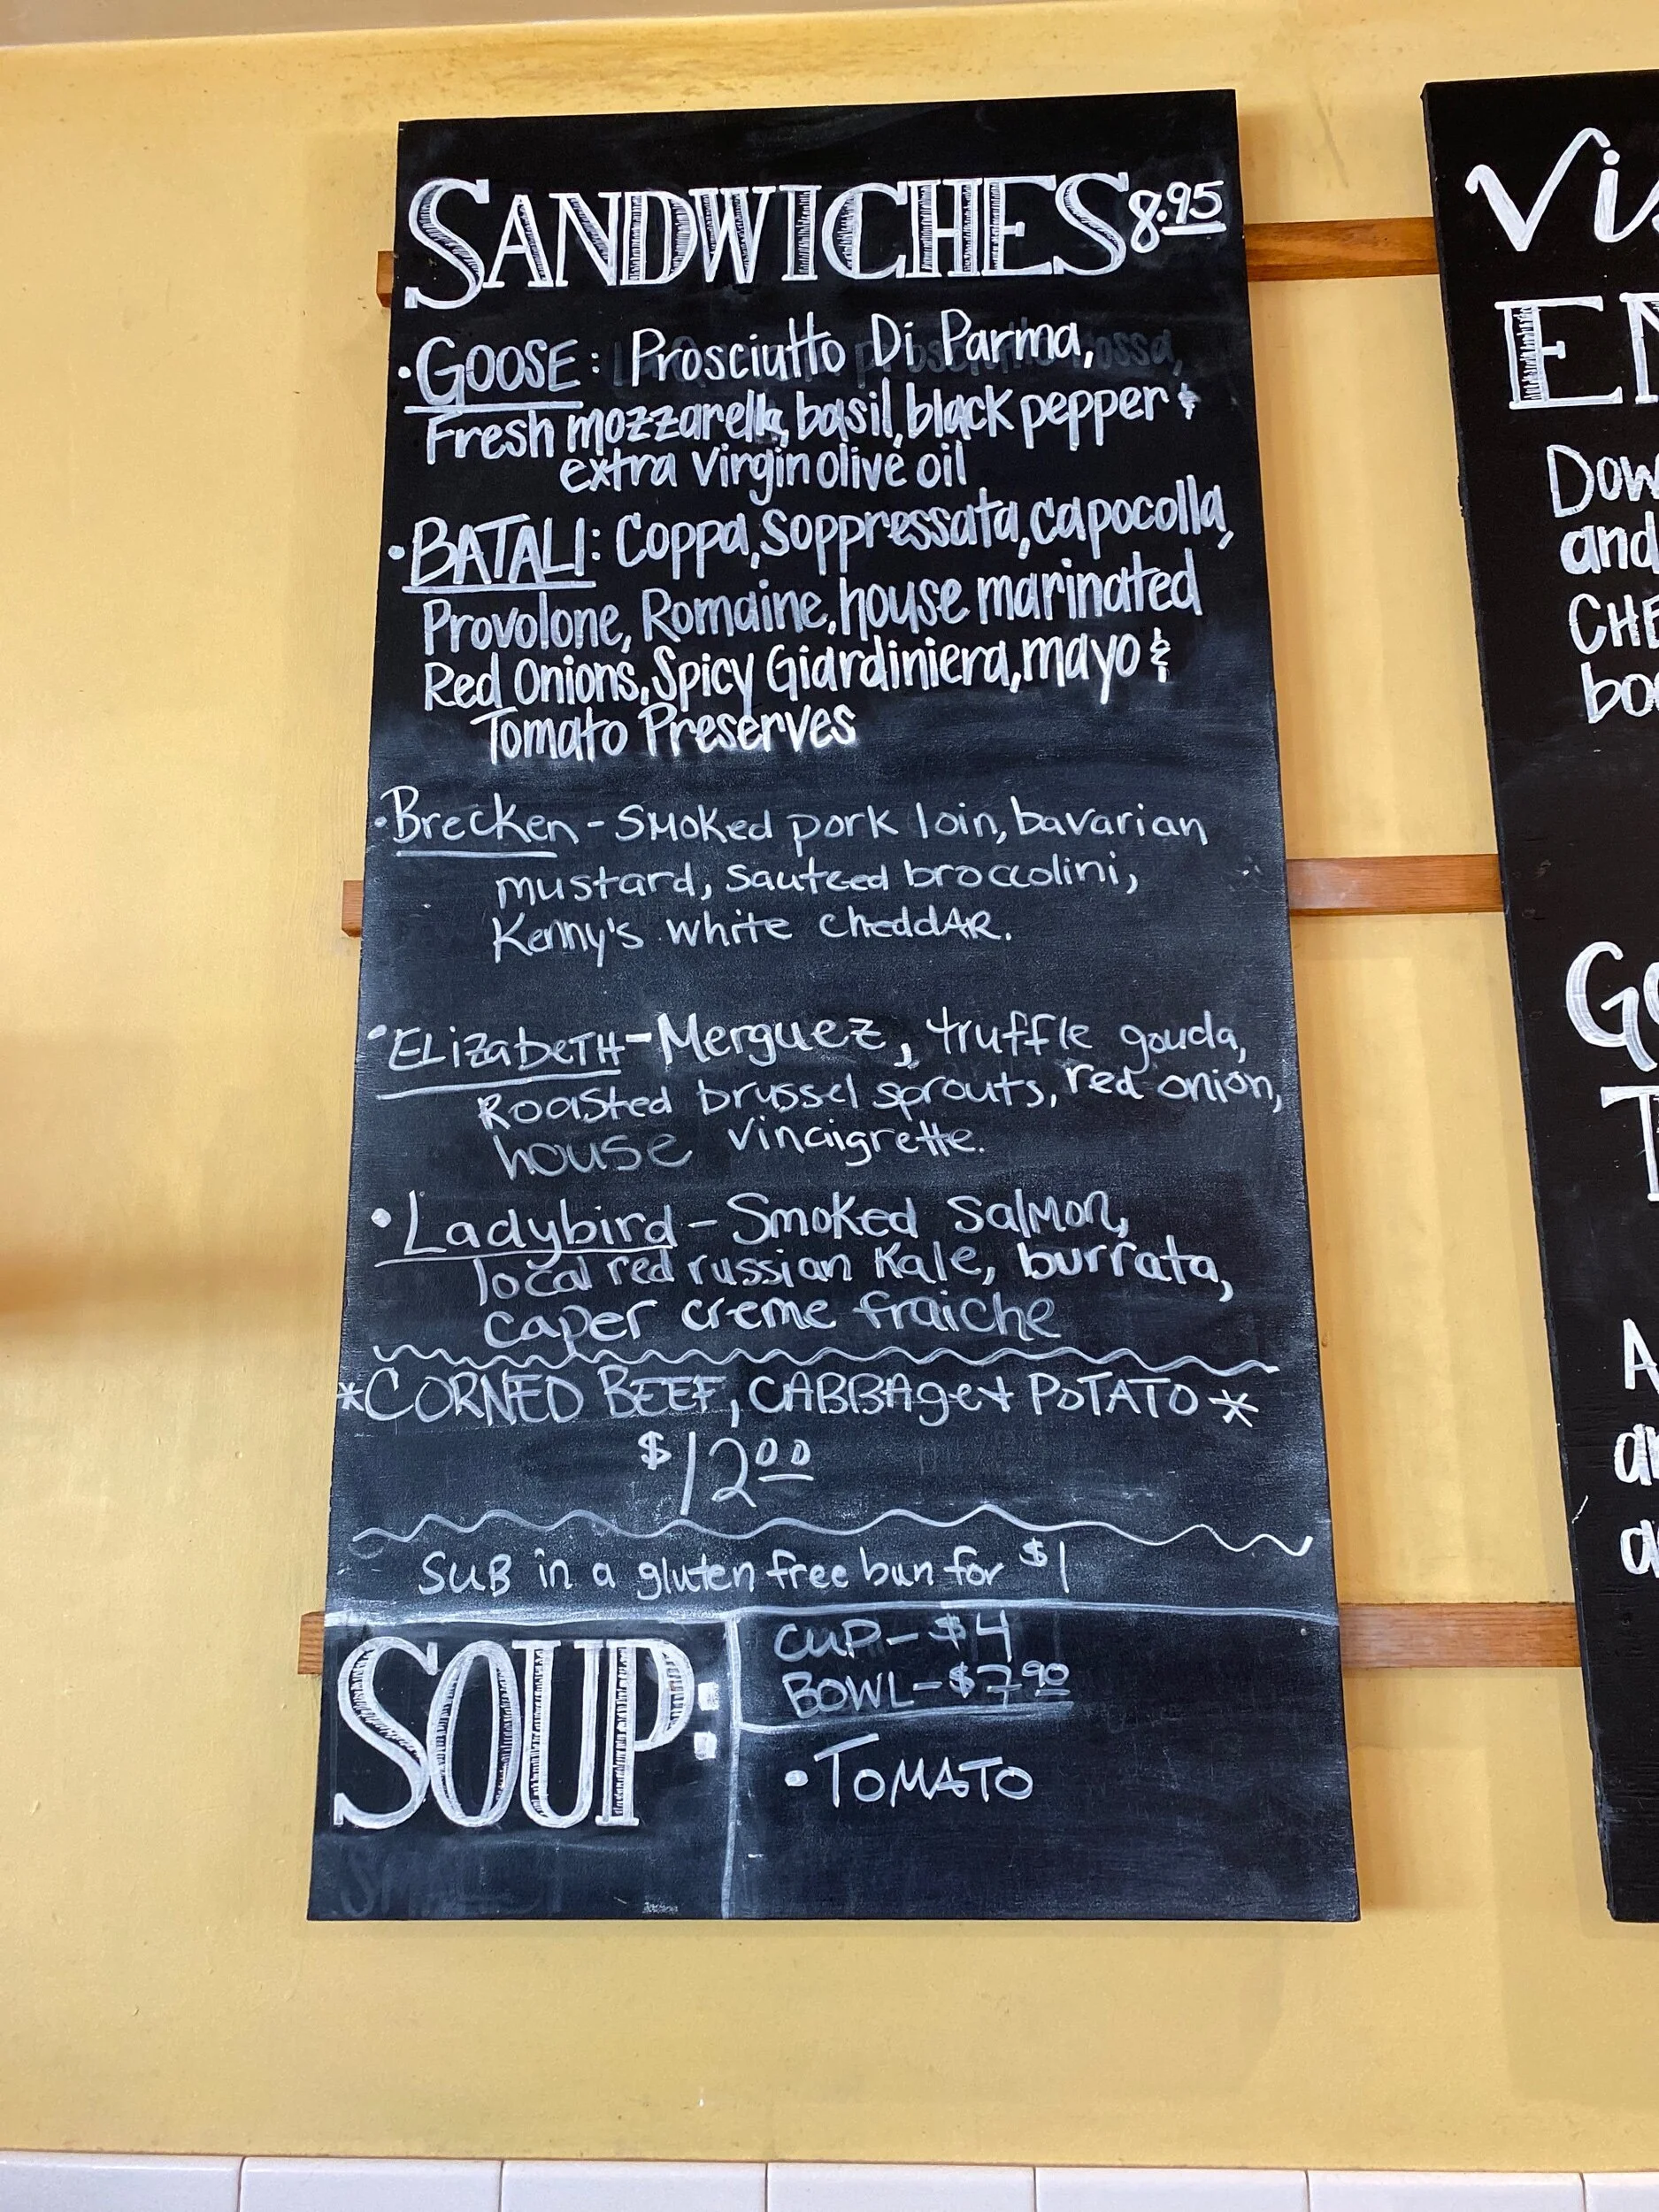 SANDWICHES 8.95
• GOOSE: Prosciutto Di Parma,
Fresh mozzarella, basil, black pepper &
extra virgin olive oil
• BATALI: Coppa, Soppressata, capocolla,
Provolone, Romaine, house marinated
Red Onions, Spicy Giardiniera, mayo &
Tomato Preserves
• Brecken - Smoked pork loin, bavarian
mustard, sauteed broccolini,
Kenny's white cheddAR.
• ELizabeTH - Merguez, truffle gouda,
Roasted brussel sprouts, red onion,
house vinaigrette.
• Ladybird - Smoked Salmon,
local red russian Kale, burrata,
caper creme fraiche
*CORNED BEEF, CABBAge + PoTATO*
$12.00
SUB in a gluten free bun for $1
SOUP:
CUP - $4
BOWL - $7.90
• TOMATO
Vis
EN
Dow
and
CHE
bo
Go
T
A
an
a